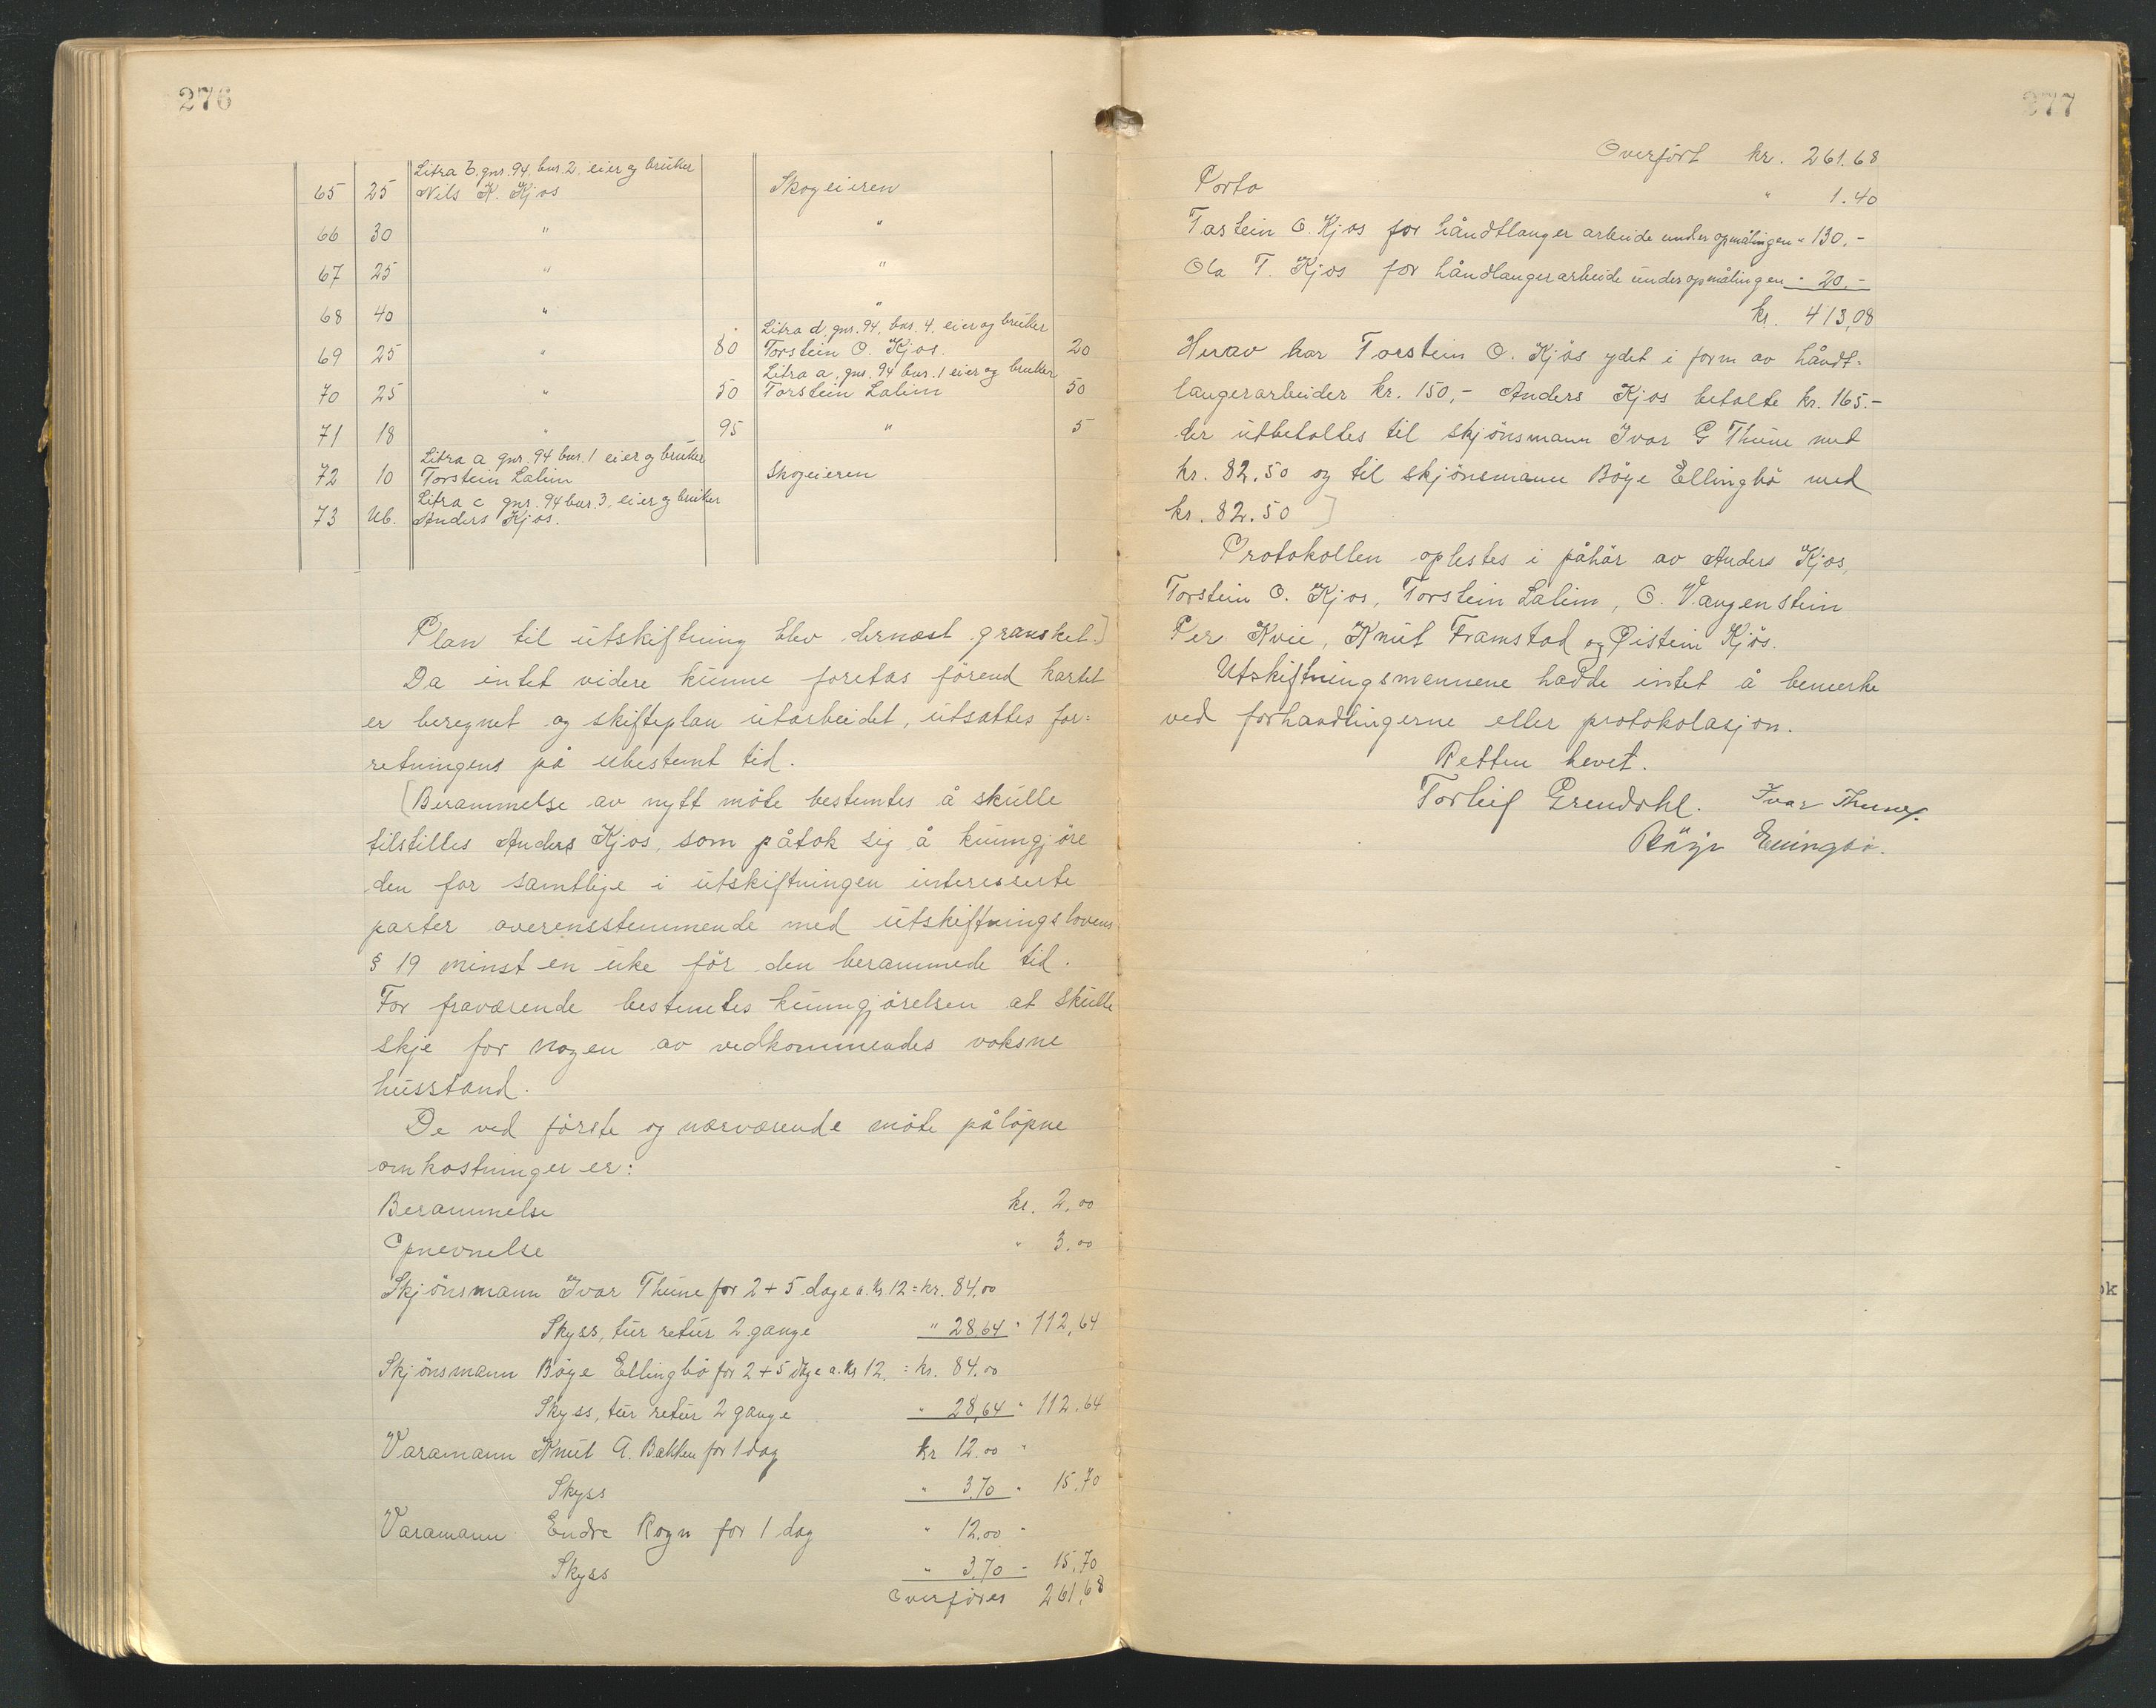 276
Litra b. gnr. 94, bnr. 2, eier og bruker
65 25 Nils K. Kjos Skogeieren
66 30 " "
67 25 " "
68 40 " "
Litra d, gnr. 94, bnr. 4, eier og bruker
69 25 " 80 Torstein O. Kjos. 20
Litra a, gnr. 94 bnr. 1 eier og bruker
70 25 " 50 Torstein Lalim 50
71 18 " 95 " 5
Litra a gnr. 94 bnr. 1 eier og bruker
72 10 Torstein Lalim Skogeieren
Litra c gnr. 94 bnr. 3, eier og bruker
73 Ub. Anders Kjos.
Plan til utskiftning blev dernæst gransket.]
Da intet videre kunne foretas förend kartet
er beregnet og skifteplan utarbeidet, utsattes for=
retningens på ubestemt tid.
[Berammelse av nytt möte bestemtes å skulle
tilstilles Anders Kjos, som påtok sig å kunngjöre
den for samtlige i utskiftningen interesserte
parter overensstemmende med utskiftningslovens
§ 19 minst en uke för den berammede tid.
For fraværende bestemtes kunngjörelsen at skulle
skje for nogen av vedkommendes voksne
husstand.
De ved förste og nærværende möte pålöpne
omkostninger er:
Berammelse kr. 2.00
Opnevnelse " 3.00
Skjönsmann Ivar Thune for 2 + 5 dage a. kr 12 = kr. 84.00
Skyss, tur retur 2 gange " 28,64 " 112,64
Skjönsmann Böye Ellingbö for 2 + 5 dage a. kr 12. = kr. 84.00
Skyss, tur retur 2 gange " 28,64 " 112.64
Varamann Knut A. Bakken for 1 dag kr 12.00 "
Skyss " 3,70 " 15.70
Varamann Endre Rogn for 1 dag " 12.00 "
Skyss " 3.70 " 15,70
Overföres 261,68
277
Overfört kr. 261.68
Porto " 1.40
Torstein O. Kjos for håndtlanger arbeide under opmålingen " 130.-
Ola T. Kjos for håndlangerarbeide under opmålingen " 20.-
kr. 413,08
Herav har Torstein O. Kjös ydet i form av håndt=
langerarbeider kr. 150,- Anders Kjos betalte kr. 165.-
der utbetaltes til skjönsmann Ivar G Thune med
kr. 82.50 og til skjönsmann Böye Ellingbö med
kr. 82.50]
Protokollen oplestes i påhör av Anders Kjos,
Torstein O. Kjos, Torstein Lalim, O. Vangenstein
Per Kvie, Knut Framstad og Øistein Kjös.
Utskiftningsmennene hadde intet å bemerke
ved forhandlingerne eller protokolasjon.
Retten hevet.
Torleif Grendahl. Ivar Thune.
Böye Ellingbö.